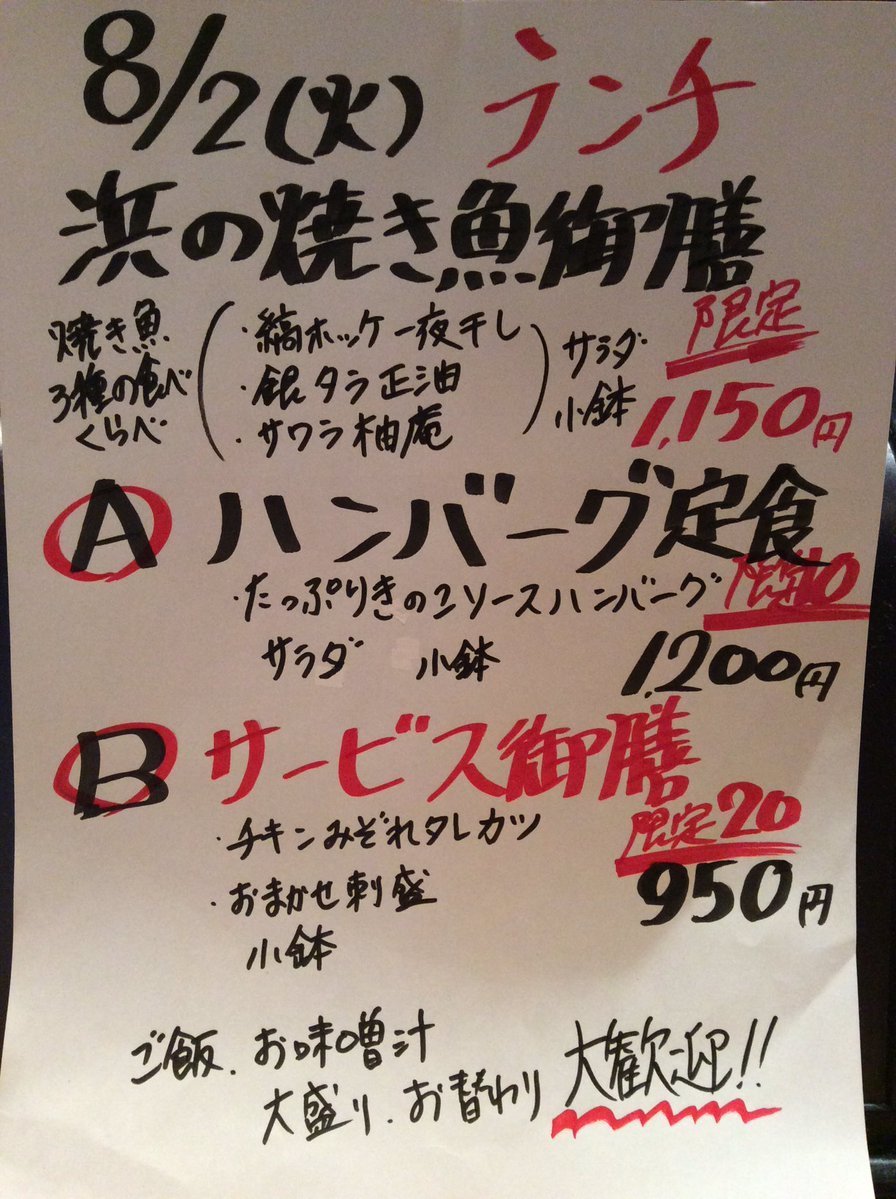 8/2(火) ランチ
浜の焼き魚御膳
限定
焼き魚
3種の食べ
くらべ
・縞ホッケ一夜干し
・銀タラ正油
・サワラ柚庵
サラダ
小鉢
1,150円
A ハンバーグ定食
限定10
・たっぷりきのこソースハンバーグ
サラダ 小鉢
1,200円
B サービス御膳
限定20
・チキンみぞれタレカツ
・おまかせ刺盛
小鉢
950円
ご飯、お味噌汁
大盛り、お替わり 大歓迎!!